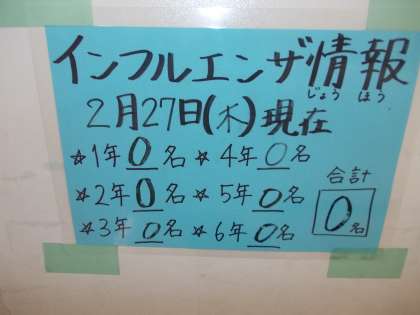 インフルエンザ情報
じょう ほう
2月27日(木)現在
☆1年0名 ☆4年0名
☆2年0名 ☆5年0名
☆3年0名 ☆6年0名
合計
0名